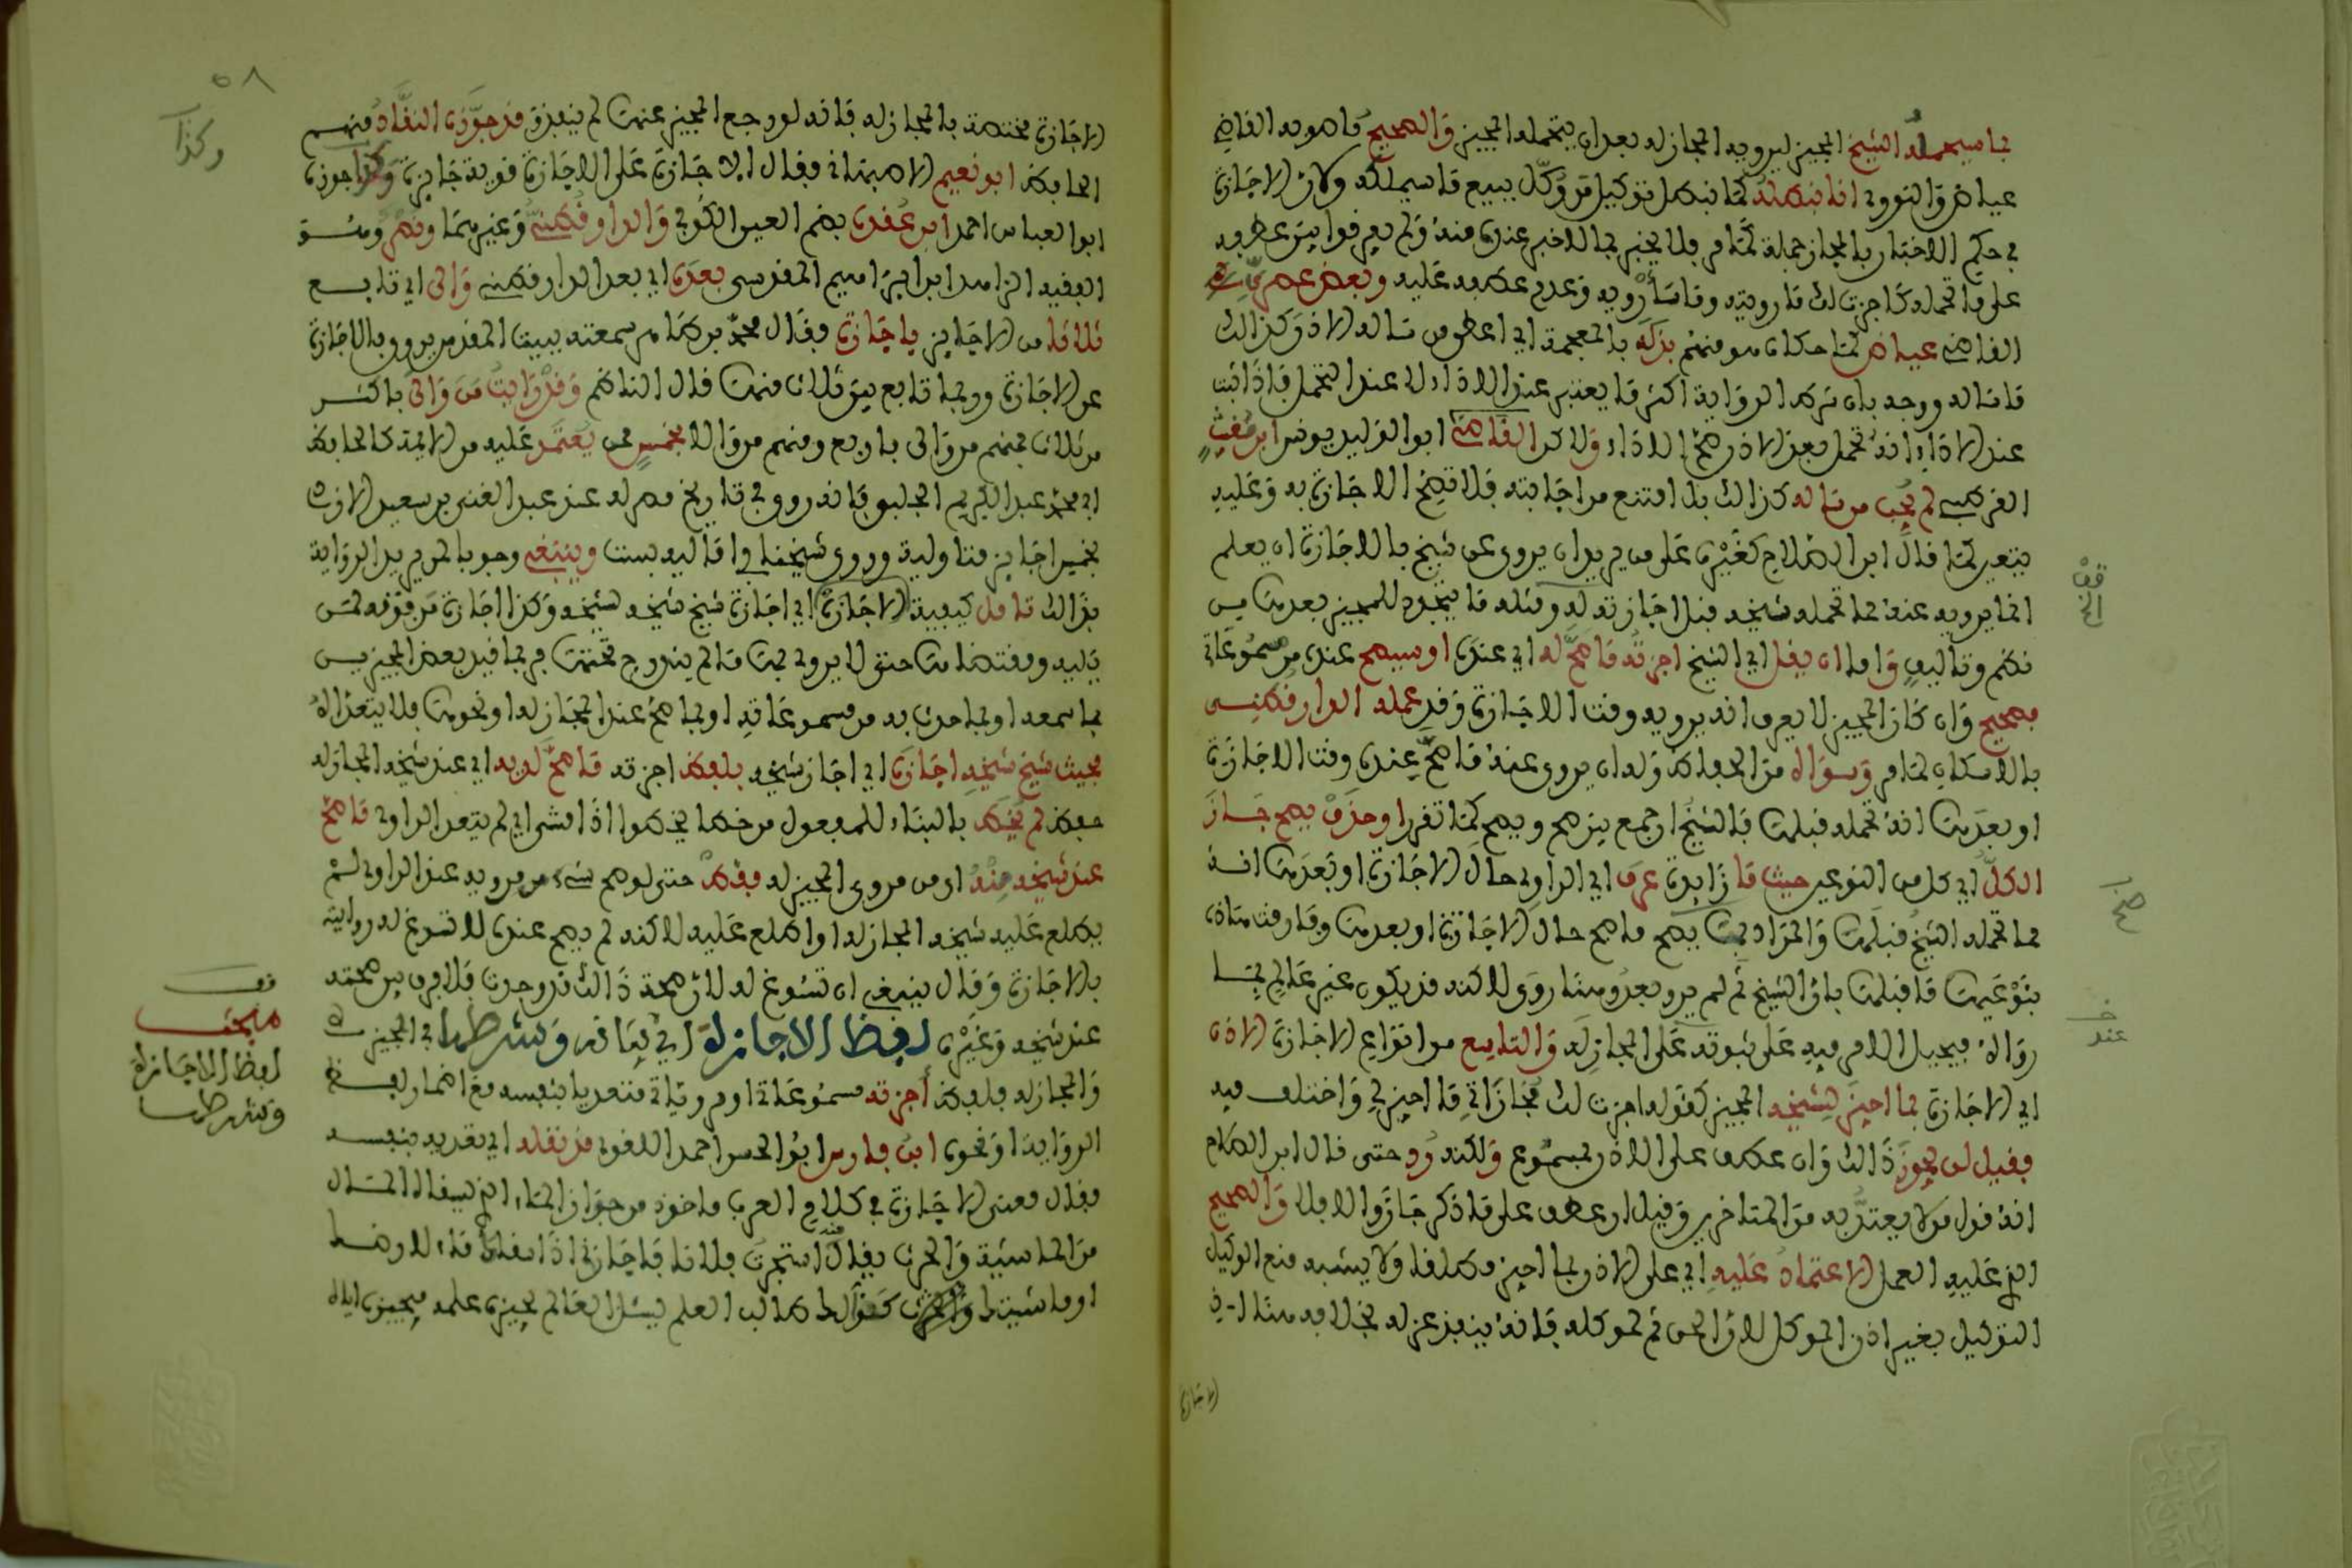 بما سيحمله الشيخ المجيز ليرويه المجاز له بعد ان يتحمله المجيز والصحيح كما صوبه القاضي
عياض والنووي انا نبطله كما نبطل توكيل من وكل ببيع ما سيملكه ولان الاجازة
في حكم الاخبار بالمجاز جملة كما مر فلا يخبر بما لا خبر عنده منه ولم يفرقوا بين عطفه
على ما تحمله كاجزت لك ما رويته وما سأرويه وعدم عطفه عليه وبعض عصريي
القاضي عياض كما حكاه هو عنهم بذله بالمعجمة اي اعطى من سأله الاذن كذلك
ما سأله ووجه بان شرط الرواية اكثر ما يعتبر عند الاداء لا عند التحمل فاذا ثبت
عند الاداء انه تحمل بعد الاذن صح الاداء ولاكن القاضي ابو الوليد يونس ابن مغيث
القرطبي لم يجب من سأله كذلك بل امتنع من اجابته فلا تصح الاجازة به وعليه
يتعين كما قال ابن الصلاح كغيره على من يريد ان يروي عن شيخ بالاجازة ان يعلم
انما يرويه عنه مما تحمله شيخه قبل اجازته له ومثله ما يتجدد للمجيز بعدها من
نظم وتاليف واما ان يقل اي الشيخ اجزته ما صح له اي عنده او سيصح عنده من مسموعاتي
فصحيح وان كان المجيز لا يعرف انه يرويه وقت الاجازة وقد عمله الدارقطني
بالاسكان لما مر وسواه من الحفاظ وله ان يروي عنه ما صح عنده وقت الاجازة
او بعدها انه تحمله قبلها فالشيخ ان جمع بين صح ويصح كما تقرر او حذف يصح جاز
الكل اي كل من النوعين حيث ما زائدة عرف اي الراوي حال الاجازة او بعدها انه
مما تحمله الشيخ قبلها والمراد بما يصح ما صح حال الاجازة او بعدها وفارقت هاذه
بنوعيها ما قبلها بان الشيخ ثم لم يرو بعد وهنا روى لاكنه قد يكون غير عالم بما
رواه فيحيل الامر فيه على ثبوته على المجاز له والتاسع من انواع الاجازة الاذن
اي الاجازة بما اجيز لشيخه المجيز كقوله اجزت لك مجازاتي ما اجيز لي واختلف فيه
فقيل لن يجوز ذالك وان عطف على الاذن بمسموع ولكنه رد حتى قال ابن الصلاح
انه قول من لا يعتد به من المتاخرين وقيل ان عطف على ما ذكر جاز والا فلا والصحيح
الذي عليه العمل الاعتماد عليه اي على الاذن بما اجيز مطلقا ولا يشبه منع الوكيل
التوكيل بغير اذن الموكل لان الحق ثم لموكله فانه ينفذ عزله بخلافه هنا اذ
الاجازة
قف
صح
خـ
عند
٥٨
وكذا
الاجازة مختصة بالمجاز له فانه لو رجع المجيز عنها لم ينفذ وقد جوزه النقاد منهم
الحافظ ابو نعيم الاصبهاني فقال الاجازة على الاجازة قوية جايزة وكذا جوزه
ابو العباس احمد ابن عقدة بضم العين الكوفي والدارقطني وغيرهما ونصر وهو
الفقيه الزاهد ابن ابراهيم المقدسي بعده اي بعد الدارقطني والى اي تابع
ثلاثا من الاجايز باجازة وقال محمد بن طاهر سمعته ببيت المقدس يروي بالاجازة
عن الاجازة وربما تابع بين ثلاث منها قال الناظم وقد رايت من والى باكثر
من ثلاث فمنهم من والى باربع ومنهم من والا بخمس ممن يعتمد عليه من الايمة كالحافظ
ابي محمد عبد الكريم الحلبي فانه روى في تاريخ مصر له عن عبد الغني بن سعيد الازدي
بخمس اجايز متوالية وروى شيخنا في اماليه بست وينبغي وجوبا لمن يريد الرواية
بذالك تامل كيفية الاجازة اي اجازة شيخ شيخه لشيخه وكذا اجازة من فوقه لمن
يليه ومقتضاها حتى لا يروي بها ما لم يندرج تحتها فربما قيد بعض المجيزين
بما سمعه او بما حدث به من مسموعاته او بما صح عند المجاز له او نحوها فلا يتعداه
بحيث شيخ شيخه اجازه اي اجاز شيخه بلفظ اجزته ما صح لديه اي عند شيخه المجاز له
فقط لم يخط بالبناء للمفعول من خطا يخطوا اذا مشى اي لم يتعد الراوي ما صح
عند شيخه منه اي من مروي المجيز له فقط حتى لو صح شيء من مرويه عند الراوي لم
يطلع عليه شيخه المجاز له او اطلع عليه لاكنه لم يصح عنده لا تسوغ له روايته
بالاجازة وقال ينبغي ان تسوغ له لان صحة ذالك قد وجدت فلا فرق بين صحته
عند شيخه وغيره لفظ الاجازة اي بيانه وشرطها في المجيز
والمجاز له فلفظ اجزته مسموعاتي او مروياتي متعديا بنفسه مع اضمار لفظ
الرواية او نحوه ابن فارس ابو الحسن احمد اللغوي قد نقله اي تعديه بنفسه
فقال معنى الاجازة في كلام العرب ماخوذ من جواز الماء الذي يسقاه المال
من الماشية والحرث يقال منه استجزت فلانا فاجازني اذا اسقاك ماء لارضك
او ماشيتك كذالك طالب العلم يسئل العالم ان يجيزه علمه فيجيزه اياه
قف
مبحث
لفظ الاجازة
وشرطها